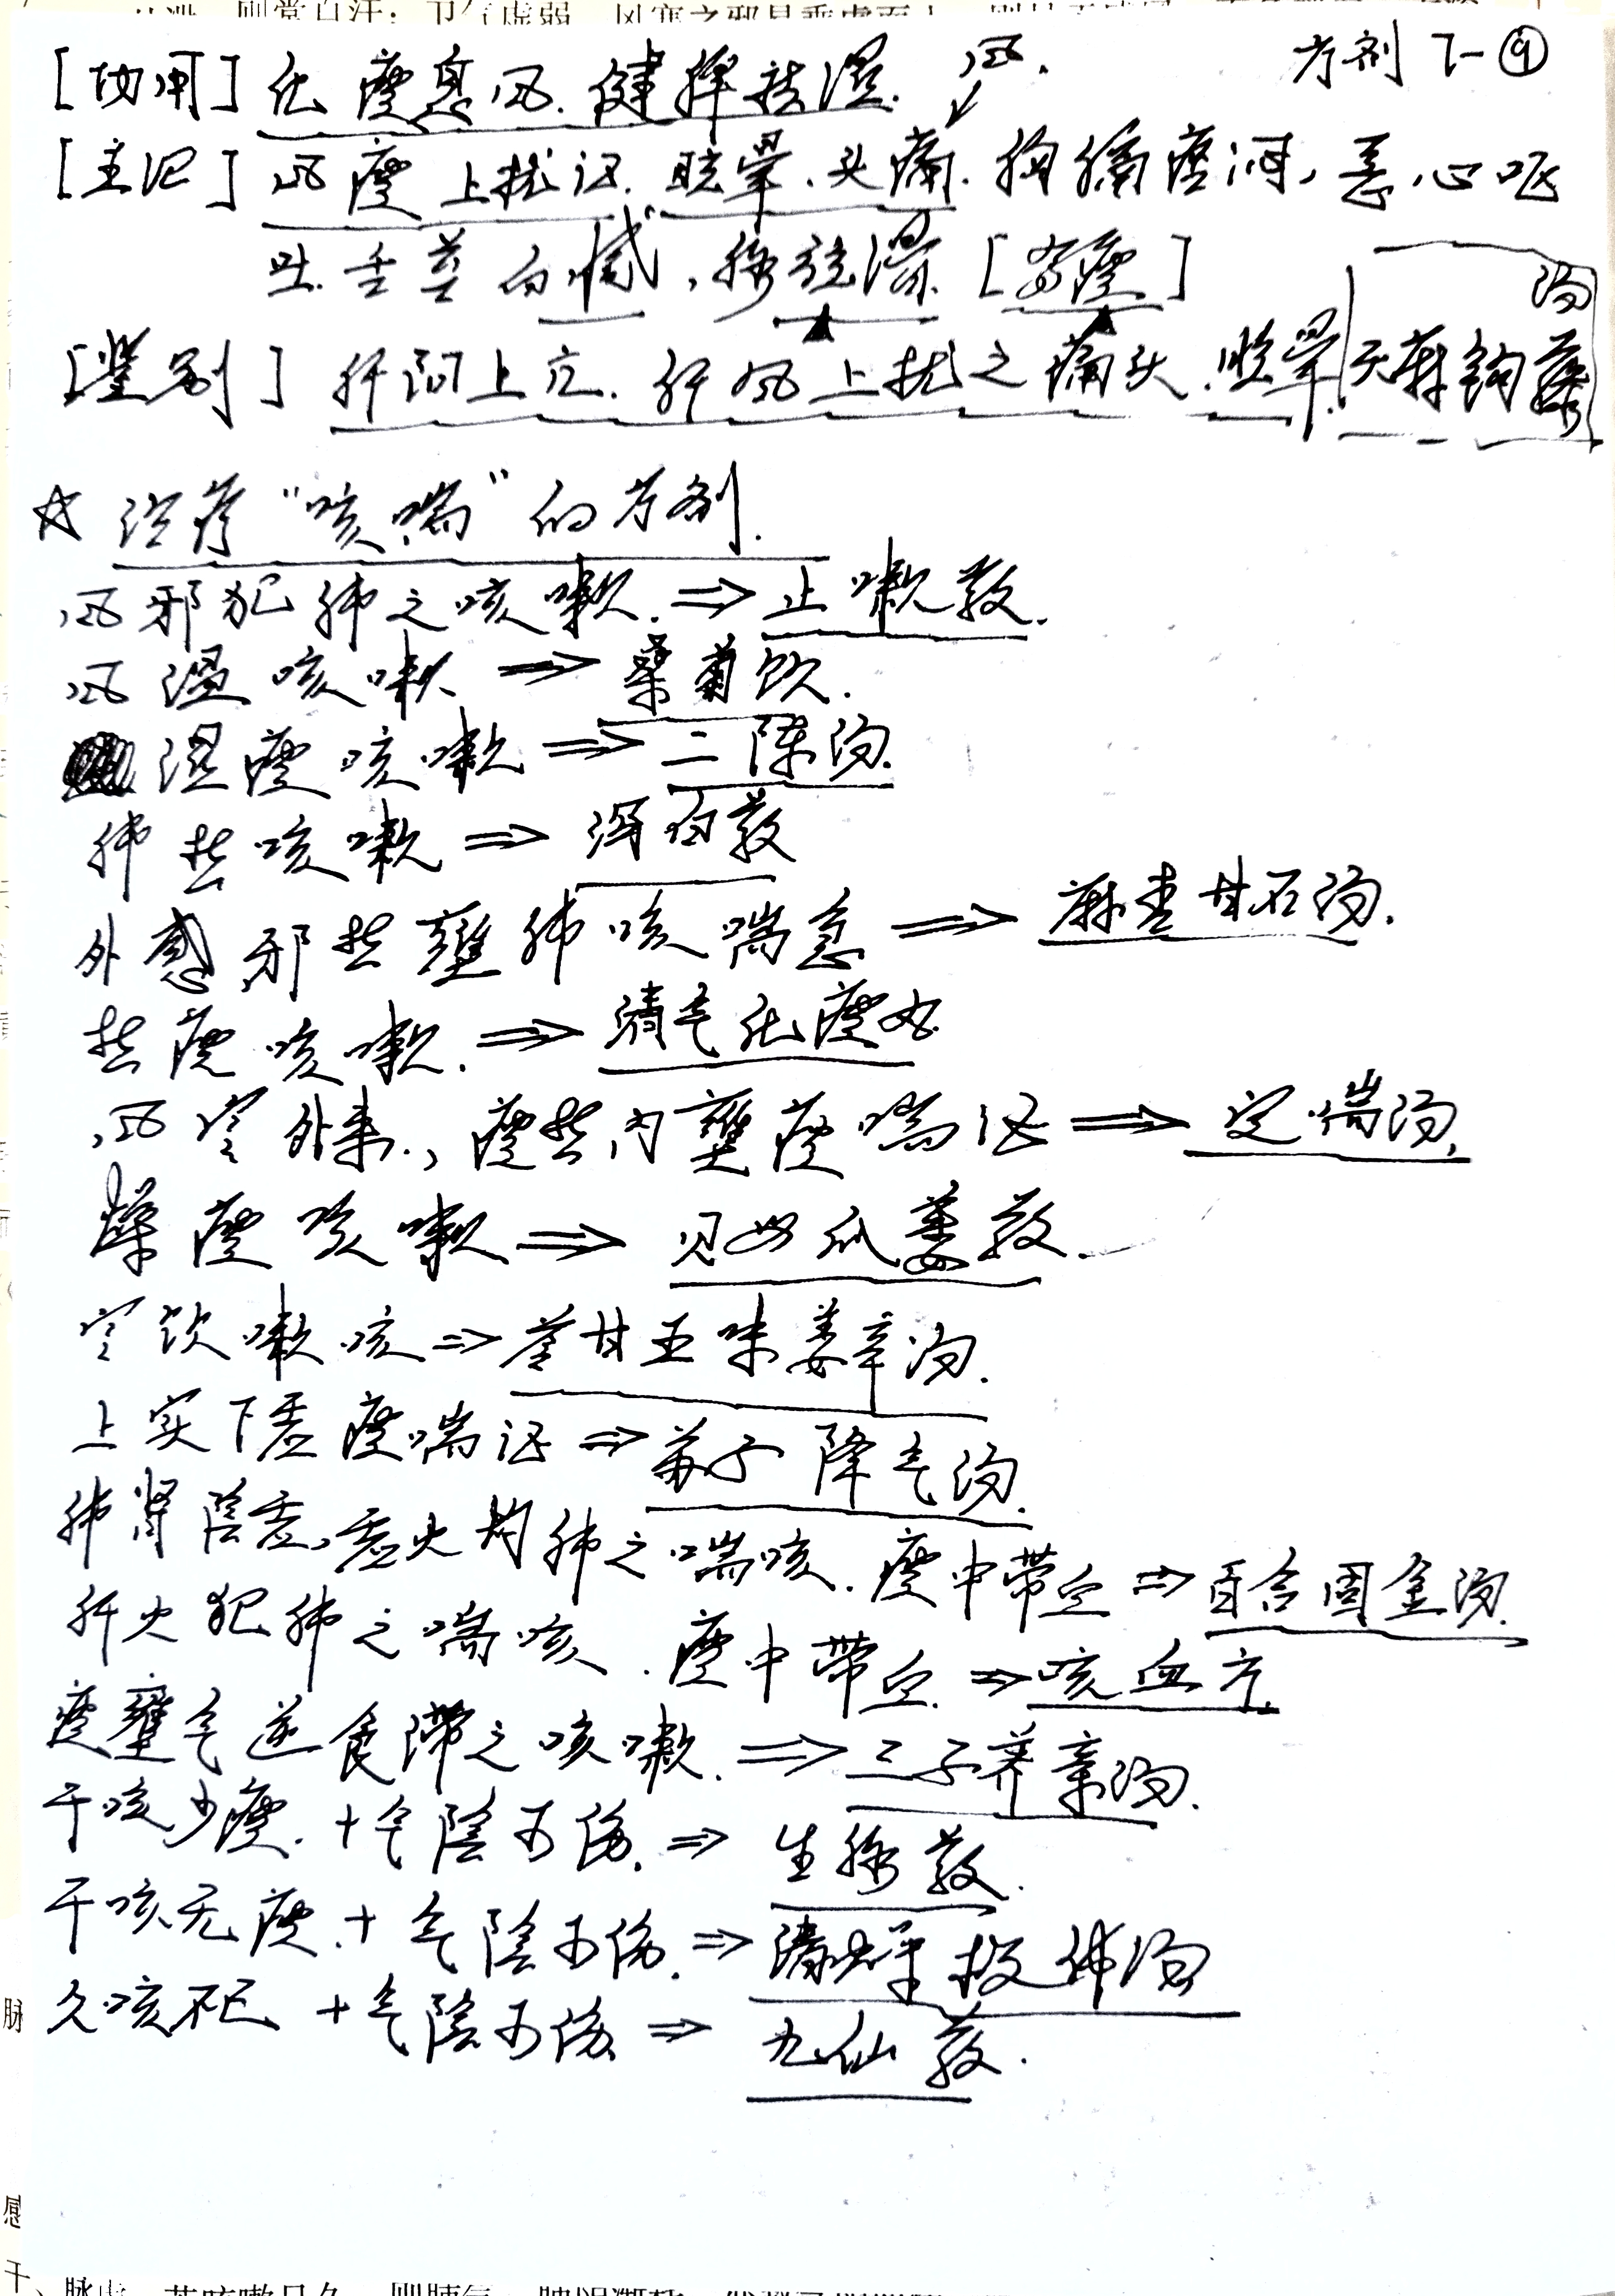 方剂 下-⑨
[功用] 化痰息风. 健脾祛湿.
风.
[主证] 风痰上扰证. 眩晕、头痛. 胸膈痞闷, 恶心呕
吐. 舌苔白腻, 脉弦滑. [夹痰]
[鉴别] 肝阳上亢. 肝风上扰之痛头. 眩晕. 天麻钩藤
汤
☆ 治疗“咳喘”的方剂.
风邪犯肺之咳嗽. ⇒ 止嗽散.
风温咳嗽 ⇒ 桑菊饮.
湿痰咳嗽 ⇒ 二陈汤.
肺热咳嗽 ⇒ 泻白散
外感邪热壅肺咳喘急 ⇒ 麻杏甘石汤.
热痰咳嗽. ⇒ 清气化痰丸
风寒外束., 痰热内壅痰喘证 ⇒ 定喘汤.
燥痰咳嗽 ⇒ 贝母瓜蒌散.
寒饮嗽咳 ⇒ 苓甘五味姜辛汤.
上实下虚痰喘证 ⇒ 苏子降气汤.
肺肾陰虚, 虚火灼肺之喘咳. 痰中带血 ⇒ 百合固金汤.
肝火犯肺之喘咳. 痰中带血. ⇒ 咳血方.
痰壅气逆食滞之咳嗽. ⇒ 三子养亲汤.
干咳少痰. + 气陰两伤. ⇒ 生脉散.
干咳无痰. + 气陰两伤. ⇒ 清燥救肺汤
久咳不已 + 气陰两伤 ⇒ 九仙散.
脉
感
干、脉